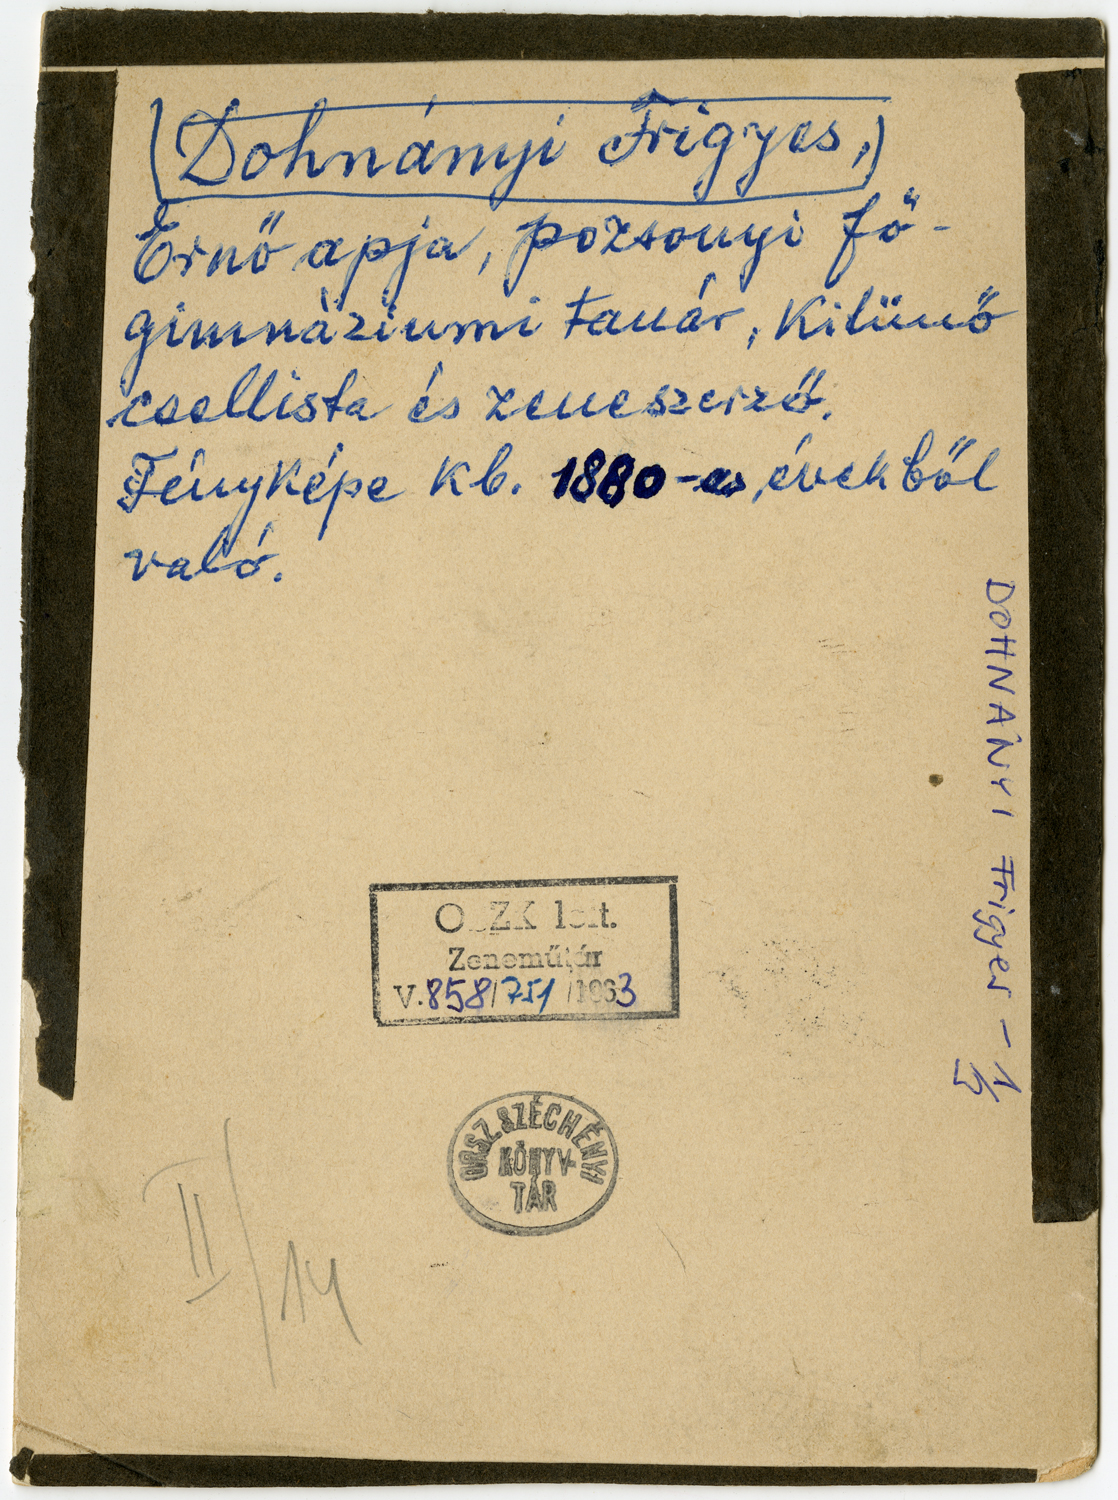 (Dohnányi Frigyes,)
Ernő apja, pozsonyi fő-
gimnáziumi tanár, kitünő
csellista és zeneszerző.
Fényképe kb. 1880-as évekből
való.
DOHNÁNYI Frigyes - 1/5
OSZK leit.
Zeneműtár
V. 858/751/1963
ORSZ. SZÉCHÉNYI
KÖNYV-
TÁR
II/14